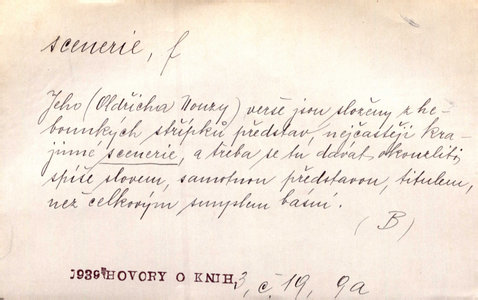 scenerie, f
Jeho (Oldřicha Nouzy) verše jsou složeny z he-
bounkých střípků představ, nejčastěji kra-
jinné scenerie, a třeba se tu dávat okouzliti
spíše slovem, samotnou představou, titulem,
než celkovým smyslem básní.
(B)
1939 HOVORY O KNIH. 3, č. 19, 9a